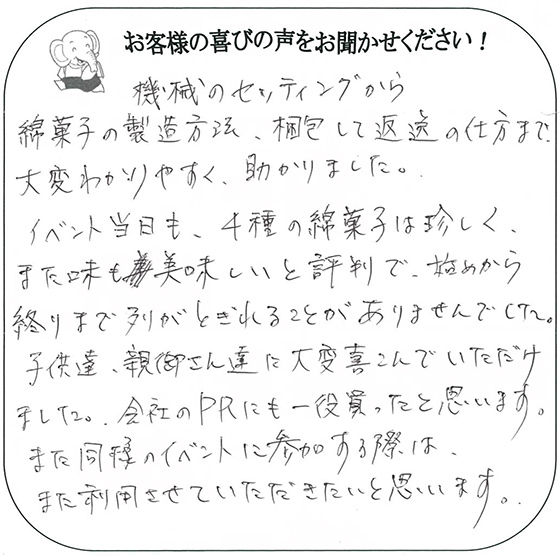 お客様の喜びの声をお聞かせください！
機械のセッティングから
綿菓子の製造方法、梱包して返送の仕方まで
大変わかりやすく、助かりました。
イベント当日も、4種の綿菓子は珍しく、
また味も美味しいと評判で、始めから
終りまで列がとぎれることがありませんでした。
子供達、親御さん達に大変喜こんでいただけ
ました。会社のPRにも一役買ったと思います。
また同様のイベントに参加する際は、
また利用させていただきたいと思います。